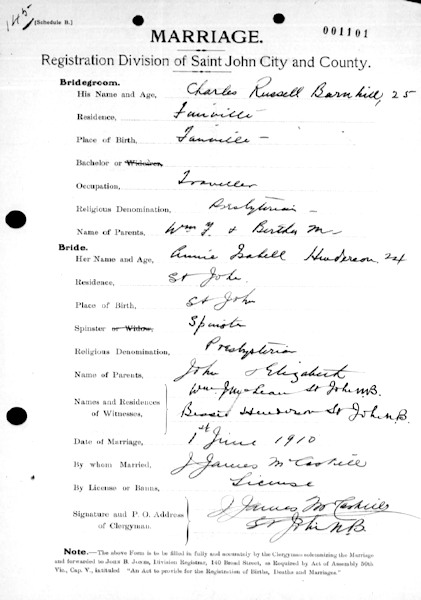 145
[Schedule B.]
001101
MARRIAGE.
Registration Division of Saint John City and County.
Bridegroom.
His Name and Age, Charles Russell Barnhill, 25
Residence, Fairville
Place of Birth, Fairville —
Bachelor or Widower,
Occupation, Traveller
Religious Denomination, Presbyterian —
Name of Parents, Wm Y. & Bertha M —
Bride.
Her Name and Age, Annie Isabell Henderson 24
Residence, St John.
Place of Birth, St John
Spinster or Widow, Spinster
Religious Denomination, Presbyterian
Name of Parents, John & Elizabeth
Wm St John N.B.
Names and Residences
of Witnesses, Bessie Henderson St John N.B.
Date of Marriage, 1st June 1910
By whom Married, J James McCaskill
By License or Banns, License
Signature and P. O. Address
of Clergyman. J James McCaskill
St John N.B.
Note.—The above Form is to be filled in fully and accurately by the Clergyman solemnizing the Marriage
and forwarded to John B. Jones, Division Registrar, 140 Broad Street, as Required by Act of Assembly 50th
Vic., Cap. V., intituled "An Act to provide for the Registration of Births, Deaths and Marriages."